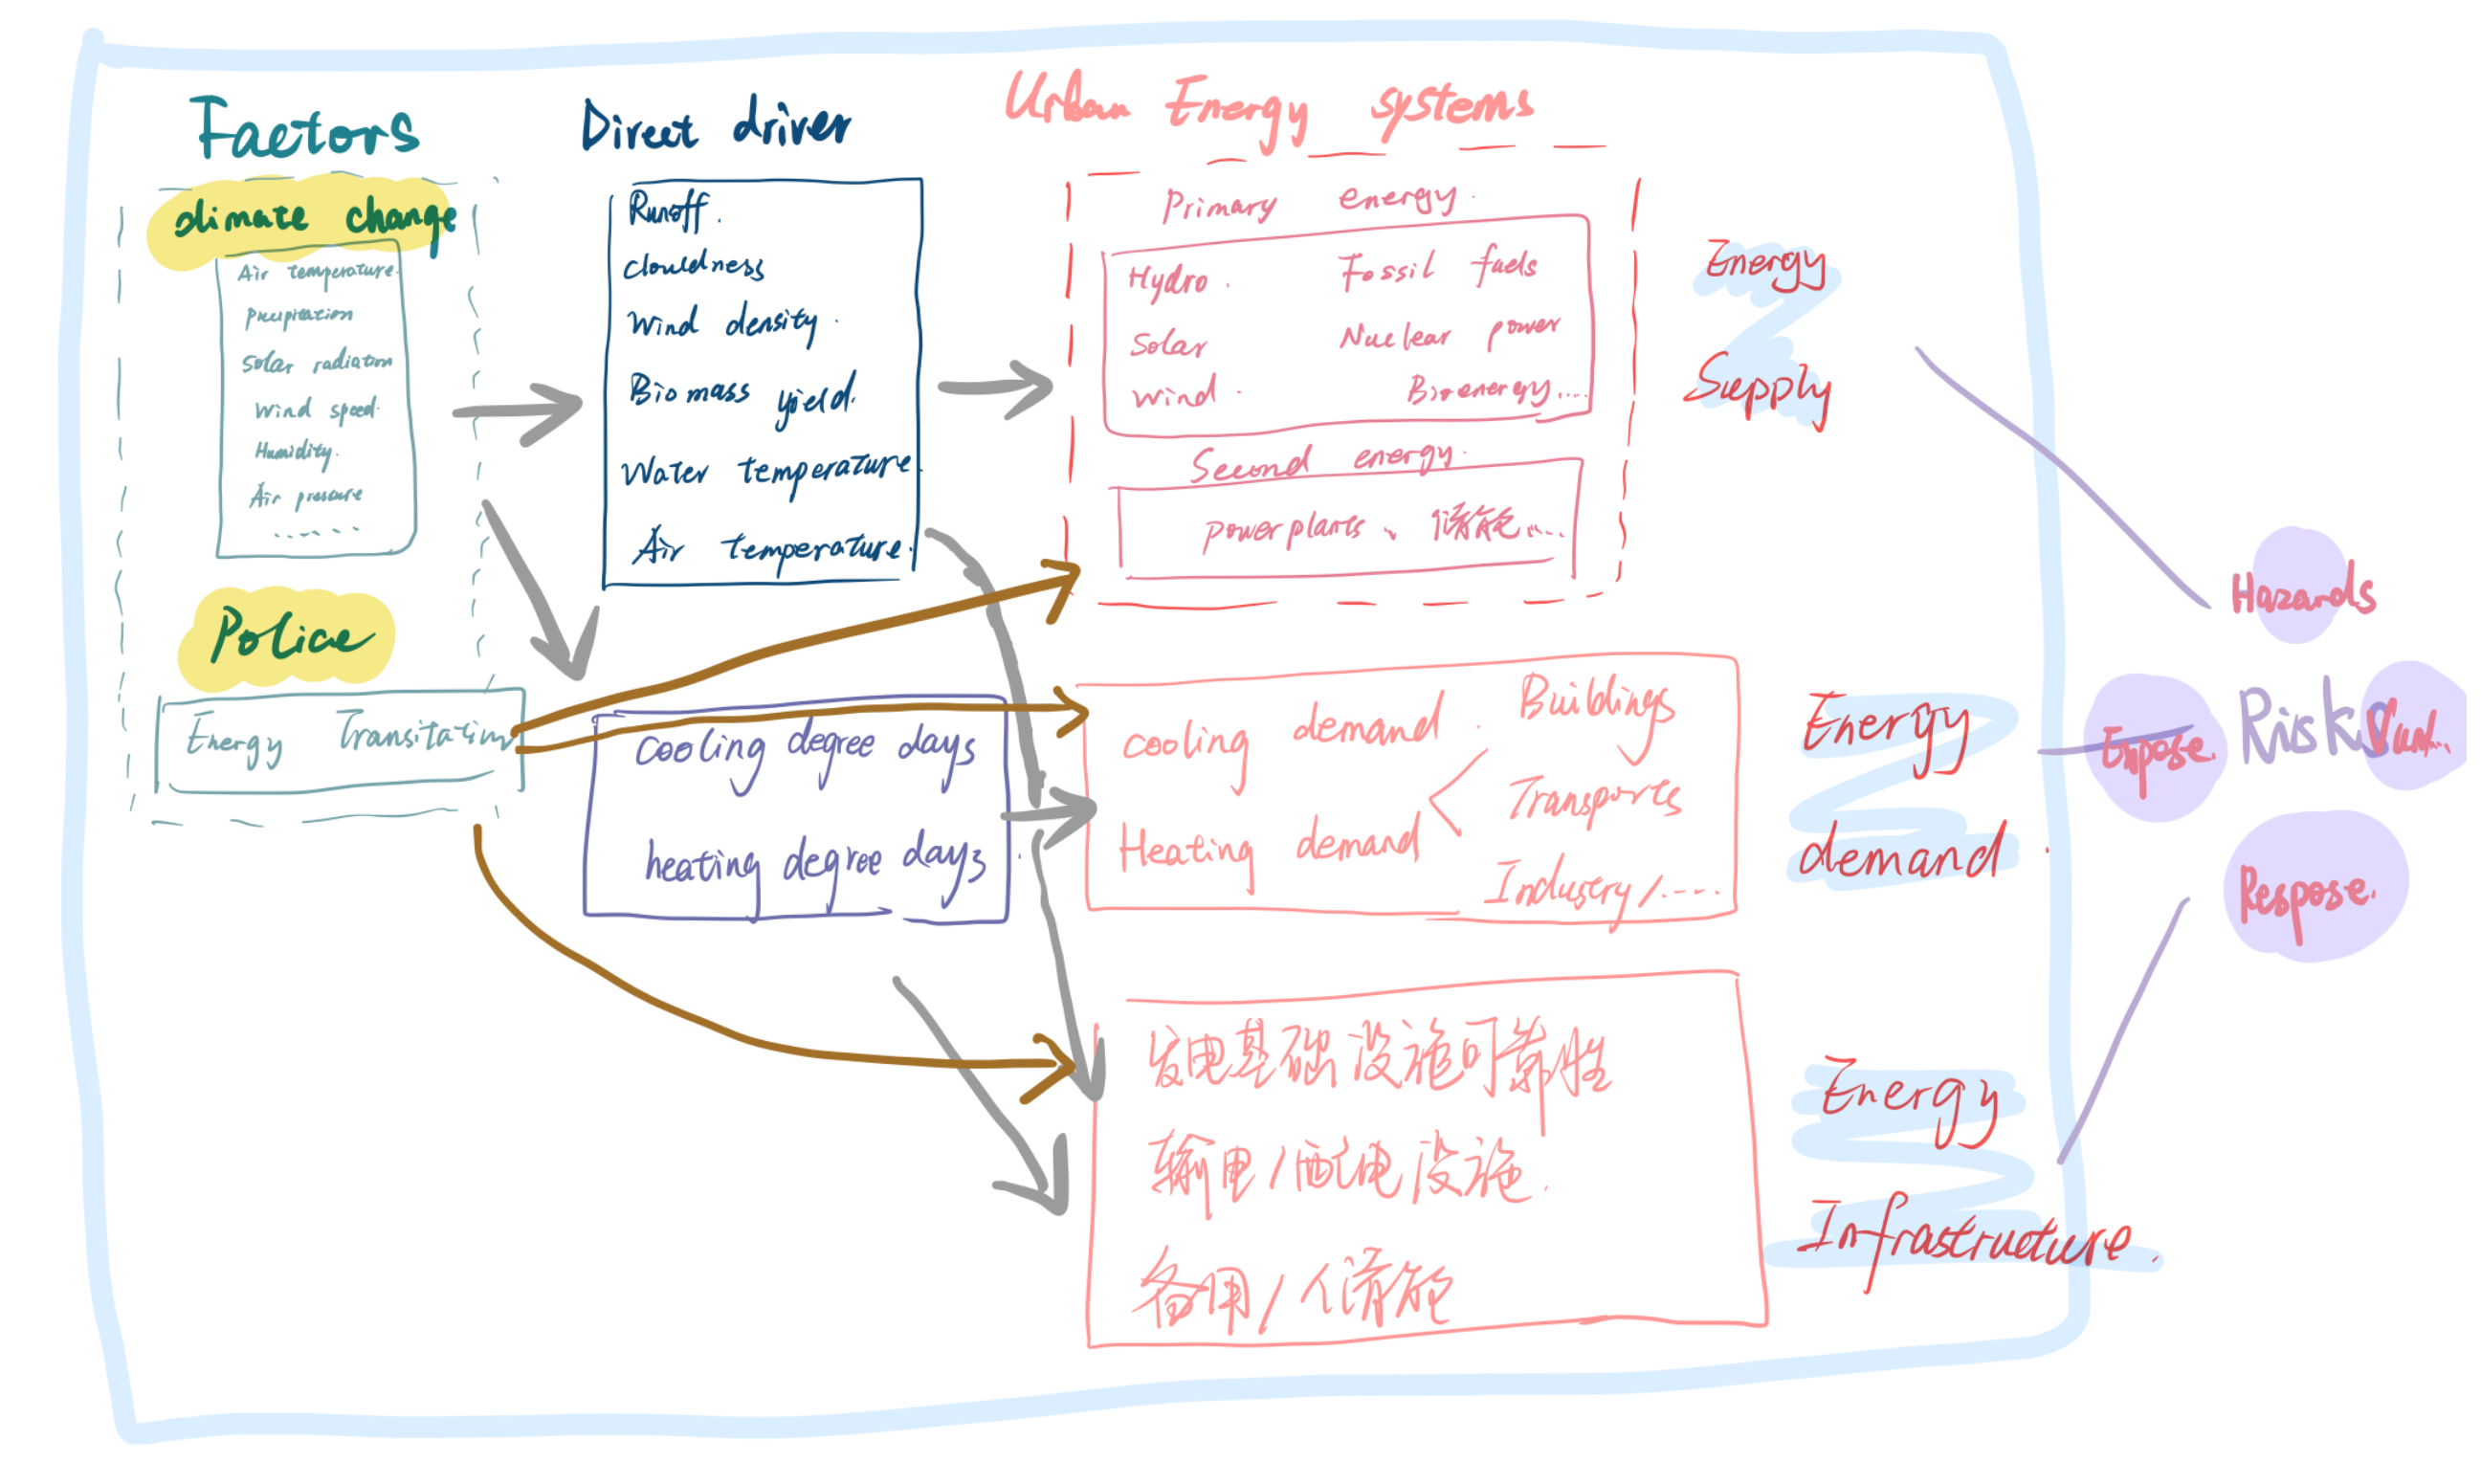 Factors
climate change
Air temperature.
Precipitation
Solar radiation
Wind speed.
Humidity.
Air pressure
......
Police
Energy Transitation
Direct driver
Runoff.
Clouldness
Wind density.
Bio mass yield.
Water temperature.
Air temperature.
cooling degree days
heating degree days.
Urban Energy systems
Primary energy.
Hydro. Fossil fuels
Solar Nuclear power
Wind. Bioenergy....
Second energy.
Power plants、储能....
cooling demand.
Heating demand
Buildings
Transports
Industry/....
发电基础设施可靠性
输电/配电设施.
备用/储能
Energy
Supply
Energy
demand.
Energy
Infrastructure.
Hazards
Expose.
Risk
Vul...
Respose.